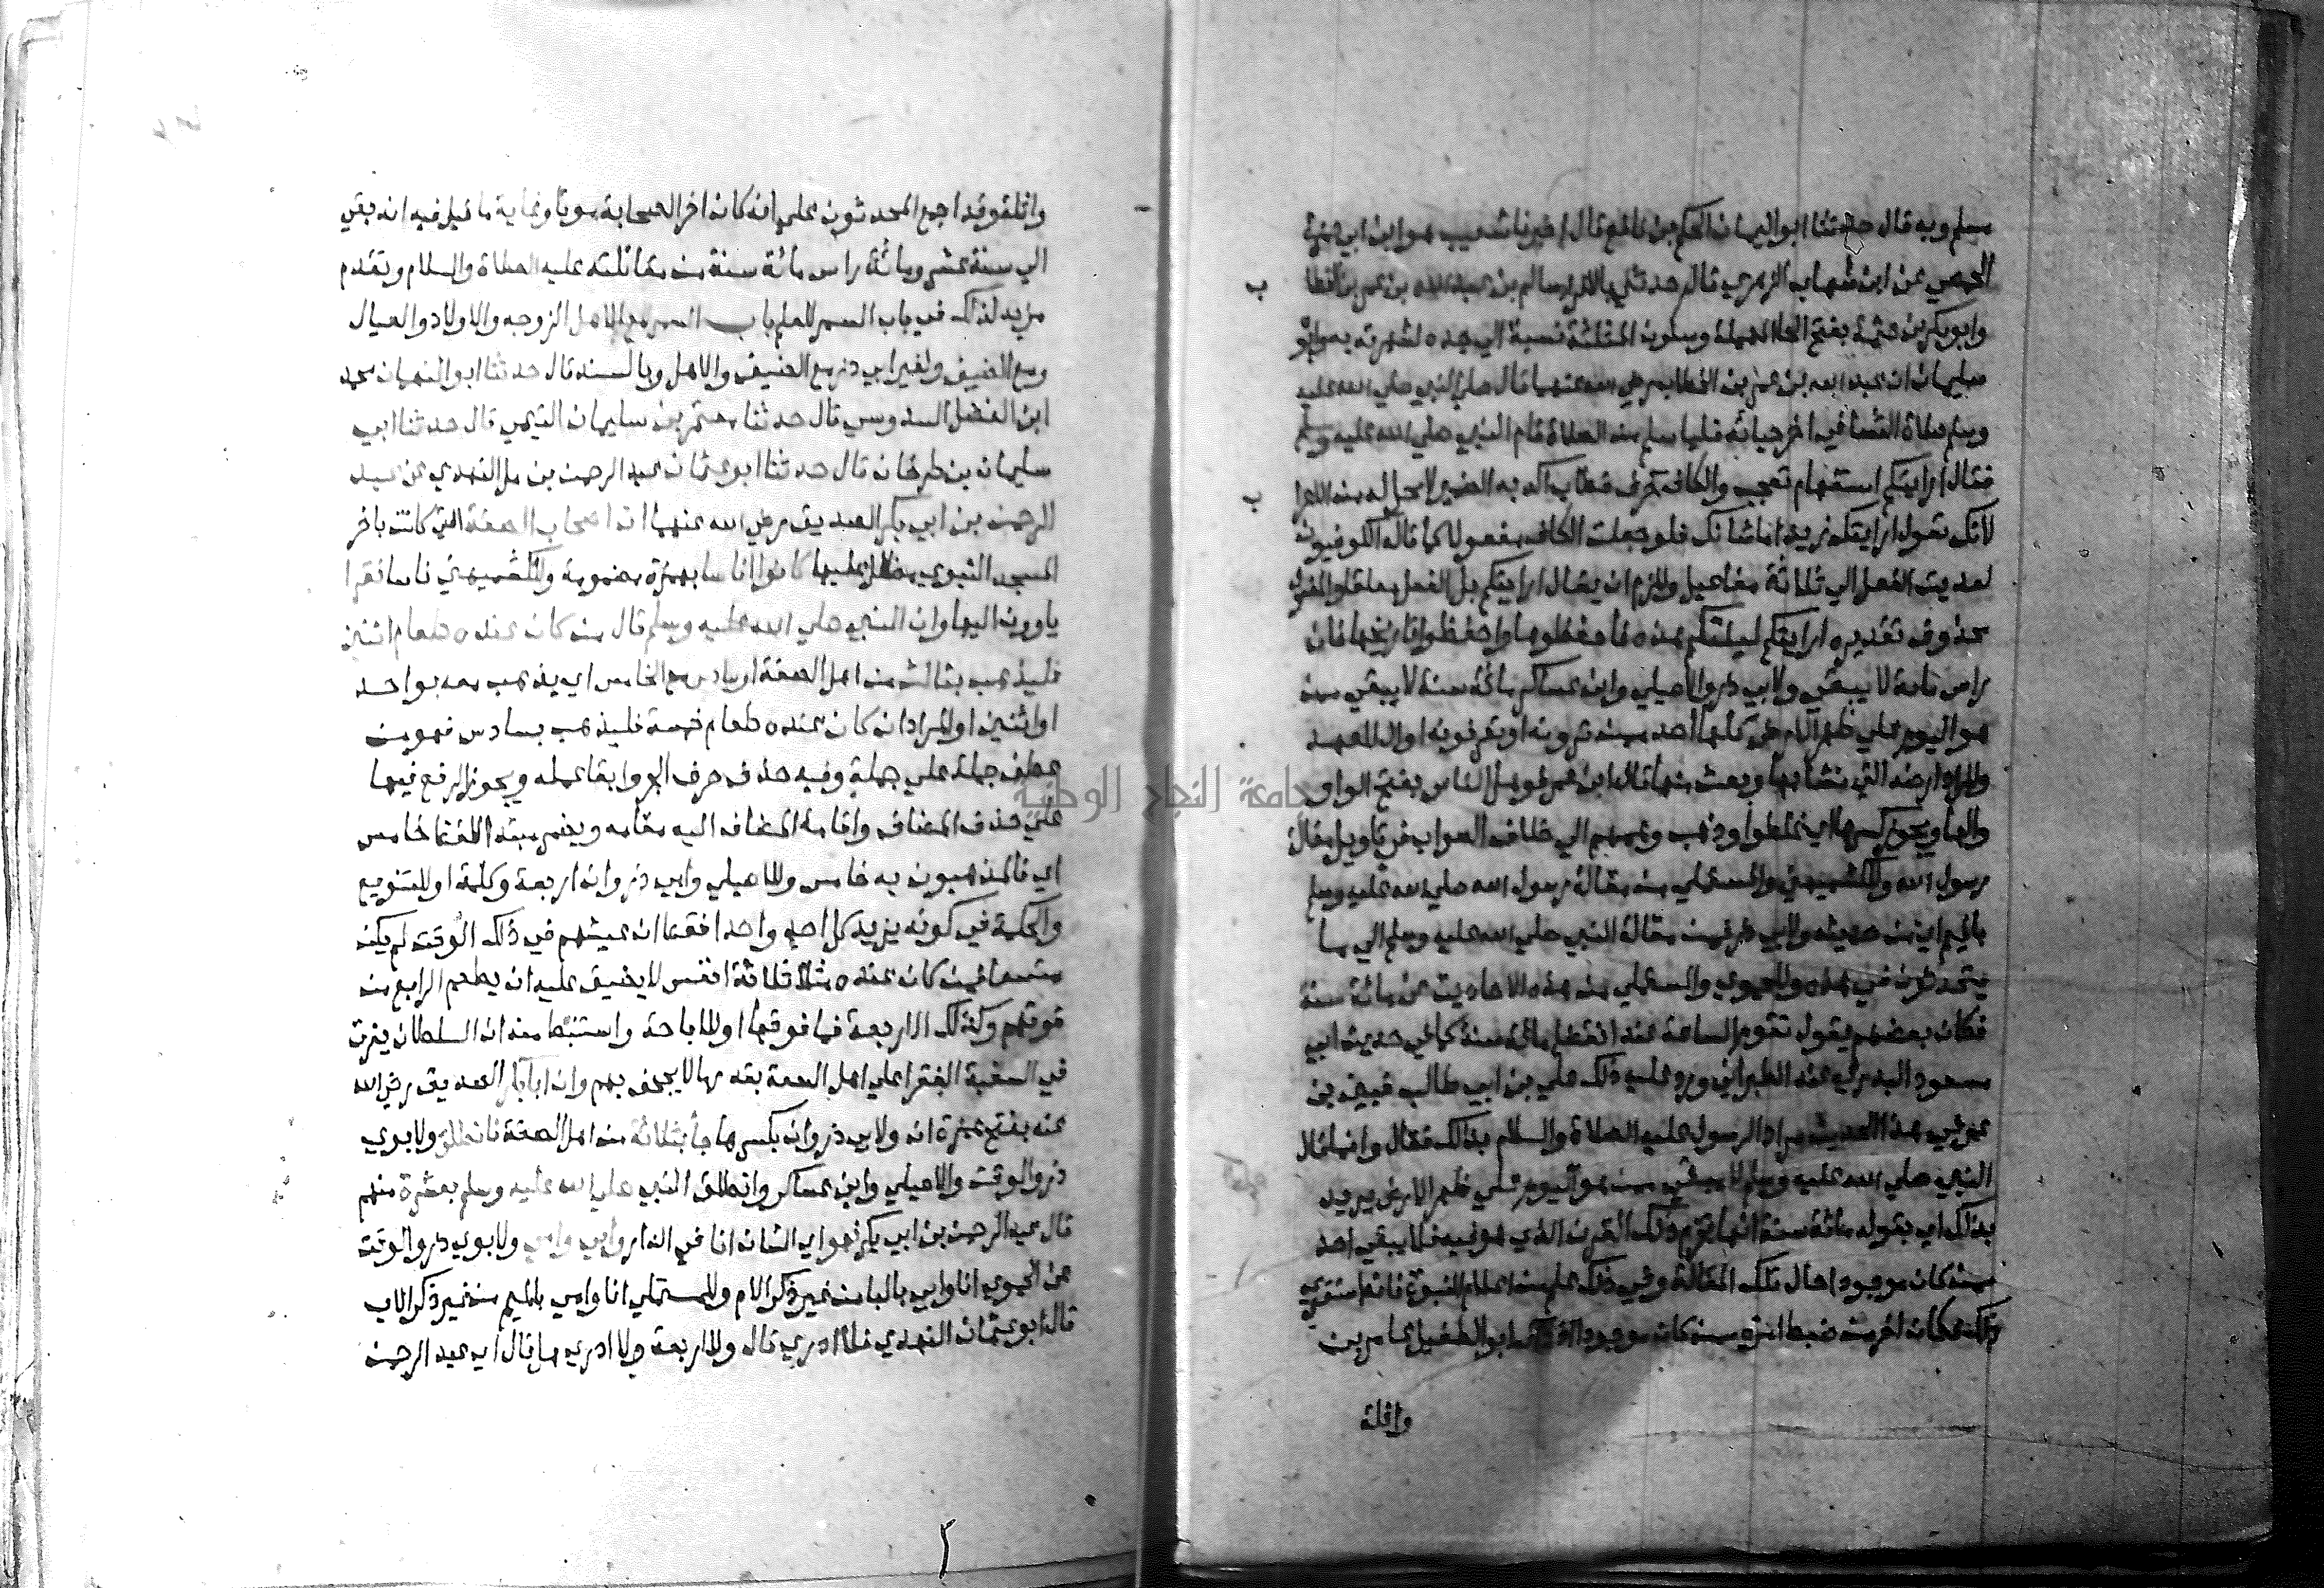 مسلم وبه قال حدثنا ابو اليمان الحكم بن نافع قال اخبرنا شعيب هو ابن ابي حمزة
الحمصي عن ابن شهاب الزهري قال حدثني بالافراد سالم بن عبد الله بن عمر بن الخطا
ب
وابو بكر بن حثمة بفتح الحا المهملة وسكون المثلثة نسبة الي جده لشهرته به وابو
سليمان ان عبد الله بن عمر بن الخطاب رضي الله عنهما قال صلي النبي صلي الله عليه
وسلم صلاة العشا في اخر حياته فلما سلم من الصلاة قام النبي صلي الله عليه وسلم
فقال ارايتكم استفهام تعجب والكاف حرف خطاب اكد به الضمير لا محل له من الاعرا
ب
لانك تقول ارايتك زيدا ما شانك فلو جعلت الكاف مفعولا كما قاله الكوفيون
لعديت الفعل الي ثلاثة مفاعيل وللزم ان يقال ارايتكم بل الفعل معلق او المفعول
محذوف تقديره ارايتكم ليلتكم هذه فاحفظوها واحفظوا تاريخها فان
راس مائة لا يبقي ولابي ذر والاصيلي وابن عساكر مائة سنة لا يبقي ممن
هو اليوم علي ظهر الارض كلها احد ممن ترونه او تعرفونه او ال للعهد
والمراد ارضه التي نشا بها وبعث منها قال ابن عمر فوهل الناس بفتح الواو
والها ويجوز كسرها اي غلطوا وذهب وهمهم الي خلاف الصواب في تاويل مقالة
رسول الله وللكشميهني والمستملي من مقالة رسول الله صلي الله عليه وسلم
بالميم اي من حديثه ولابي ذر في مقالة النبي صلي الله عليه وسلم الي ما
يتحدثون في هذه وللحموي والمستملي من هذه الاحاديث عن مائة سنة
فكان بعضهم يقول تقوم الساعة عند انقضا مائة سنة كما في حديث ابي
مسعود البدري عند الطبراني ورد عليه ذلك علي بن ابي طالب فبين بن
عمر في هذا الحديث مراد الرسول عليه الصلاة والسلام بذلك فقال وانما قال
النبي صلي الله عليه وسلم لا يبقي ممن هو اليوم علي ظهر الارض يريد
بذلك اي بقوله مائة سنة انها تخرم ذلك القرن الذي هو فيه فلا يبقي احد
ممن كان موجودا حال تلك المقالة وفي ذلك علم من اعلام النبوة فانه استقري
ذلك فكان اخر من ضبط امره ممن كان موجودا اذ ذاك ابو الطفيل عامر بن
واثلة
واثلة وقد اجمع المحدثون علي انه كان اخر الصحابة موتا وغاية ما قيل فيه انه بقي
الي سنة عشر ومائة راس مائة سنة من مقالته عليه الصلاة والسلام وتقدم
مزيد لذلك في باب السمر للعلم باب السمر مع الاهل الزوجه والاولاد والعيال
ومع الضيف ولغير ابي ذر مع الضيف والاهل وبالسند قال حدثنا ابو النعمان محمد
ابن الفضل السدوسي قال حدثنا معتمر بن سليمان التيمي قال حدثنا ابي
سليمان بن طرخان قال حدثنا ابو عثمان عبد الرحمن بن مل النهدي عن عبد
الرحمن بن ابي بكر الصديق رضي الله عنهما ان اصحاب الصفة التي كانت باخر
المسجد النبوي مظلل عليها كانوا اناسا بهمزة مضمومة وللكشميهني ناسا فقرا
ياوون اليها وان النبي صلي الله عليه وسلم قال من كان عنده طعام اثنين
فليذهب بثالث من اهل الصفة او سادس مع الخامس اي يذهب معه بواحد
او اثنين او المراد ان كان عنده طعام خمسة فليذهب بسادس فهو من
عطف جملة علي جملة وفيه حذف حرف الجر وابقا عمله ويجوز الرفع فيهما
علي حذف المضاف واقامة المضاف اليه مقامه ويضمر مبتدا للفظ خامس
اي فالمذهبون به خامس وللاصيلي وابي ذر وان اربعة وكلمة او للتنويع
والحكمة في كونه يزيد كل احد واحدا فقط ان عيشهم في ذلك الوقت لم يكن
متسعا فمن كان عنده مثلا ثلاثة انفس لا يضيق عليه ان يطعم الرابع من
قوتهم وكذلك الاربعة فما فوقها او للاباحة واستنبط منه ان السلطان يفرق
في المسغبة الفقرا علي اهل السعة بقدر ما لا يجحف بهم وان ابا بكر الصديق رضي الله
عنه بفتح همزة ان ولابي ذر وان بكسرها جا بثلاثة من اهل الصفة فانطلق ولابوي
ذر والوقت والاصيلي وابن عساكر وانطلق النبي صلي الله عليه وسلم بعشرة منهم
قال عبد الرحمن بن ابي بكر فهو اي الشان انا في الدار وابي وامي ولابوي ذر والوقت
عن الحموي انا وابي بالبا من غير ذكر الام وللمستملي انا وامي بالميم من غير ذكر الاب
قال ابو عثمان النهدي فلا ادري قال وللاربعة ولا ادري هل قال اي عبد الرحمن
جامعة النجاح الوطنية